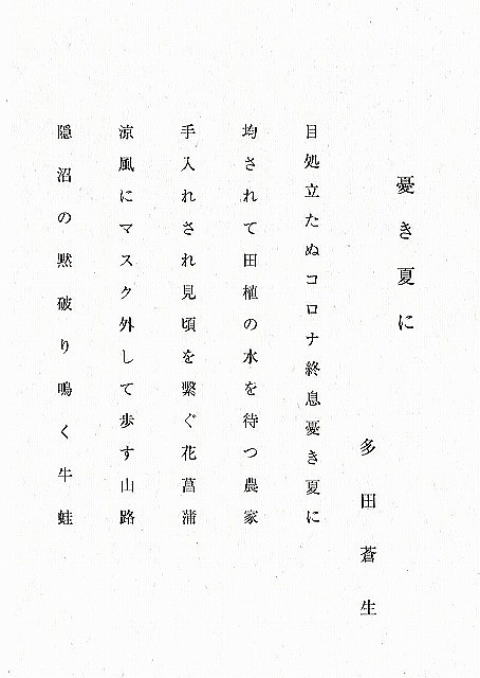 憂き夏に
多田蒼生
目処立たぬコロナ終息憂き夏に
均されて田植の水を待つ農家
手入れされ見頃を繋ぐ花菖蒲
涼風にマスク外して歩す山路
隠沼の黙破り鳴く牛蛙